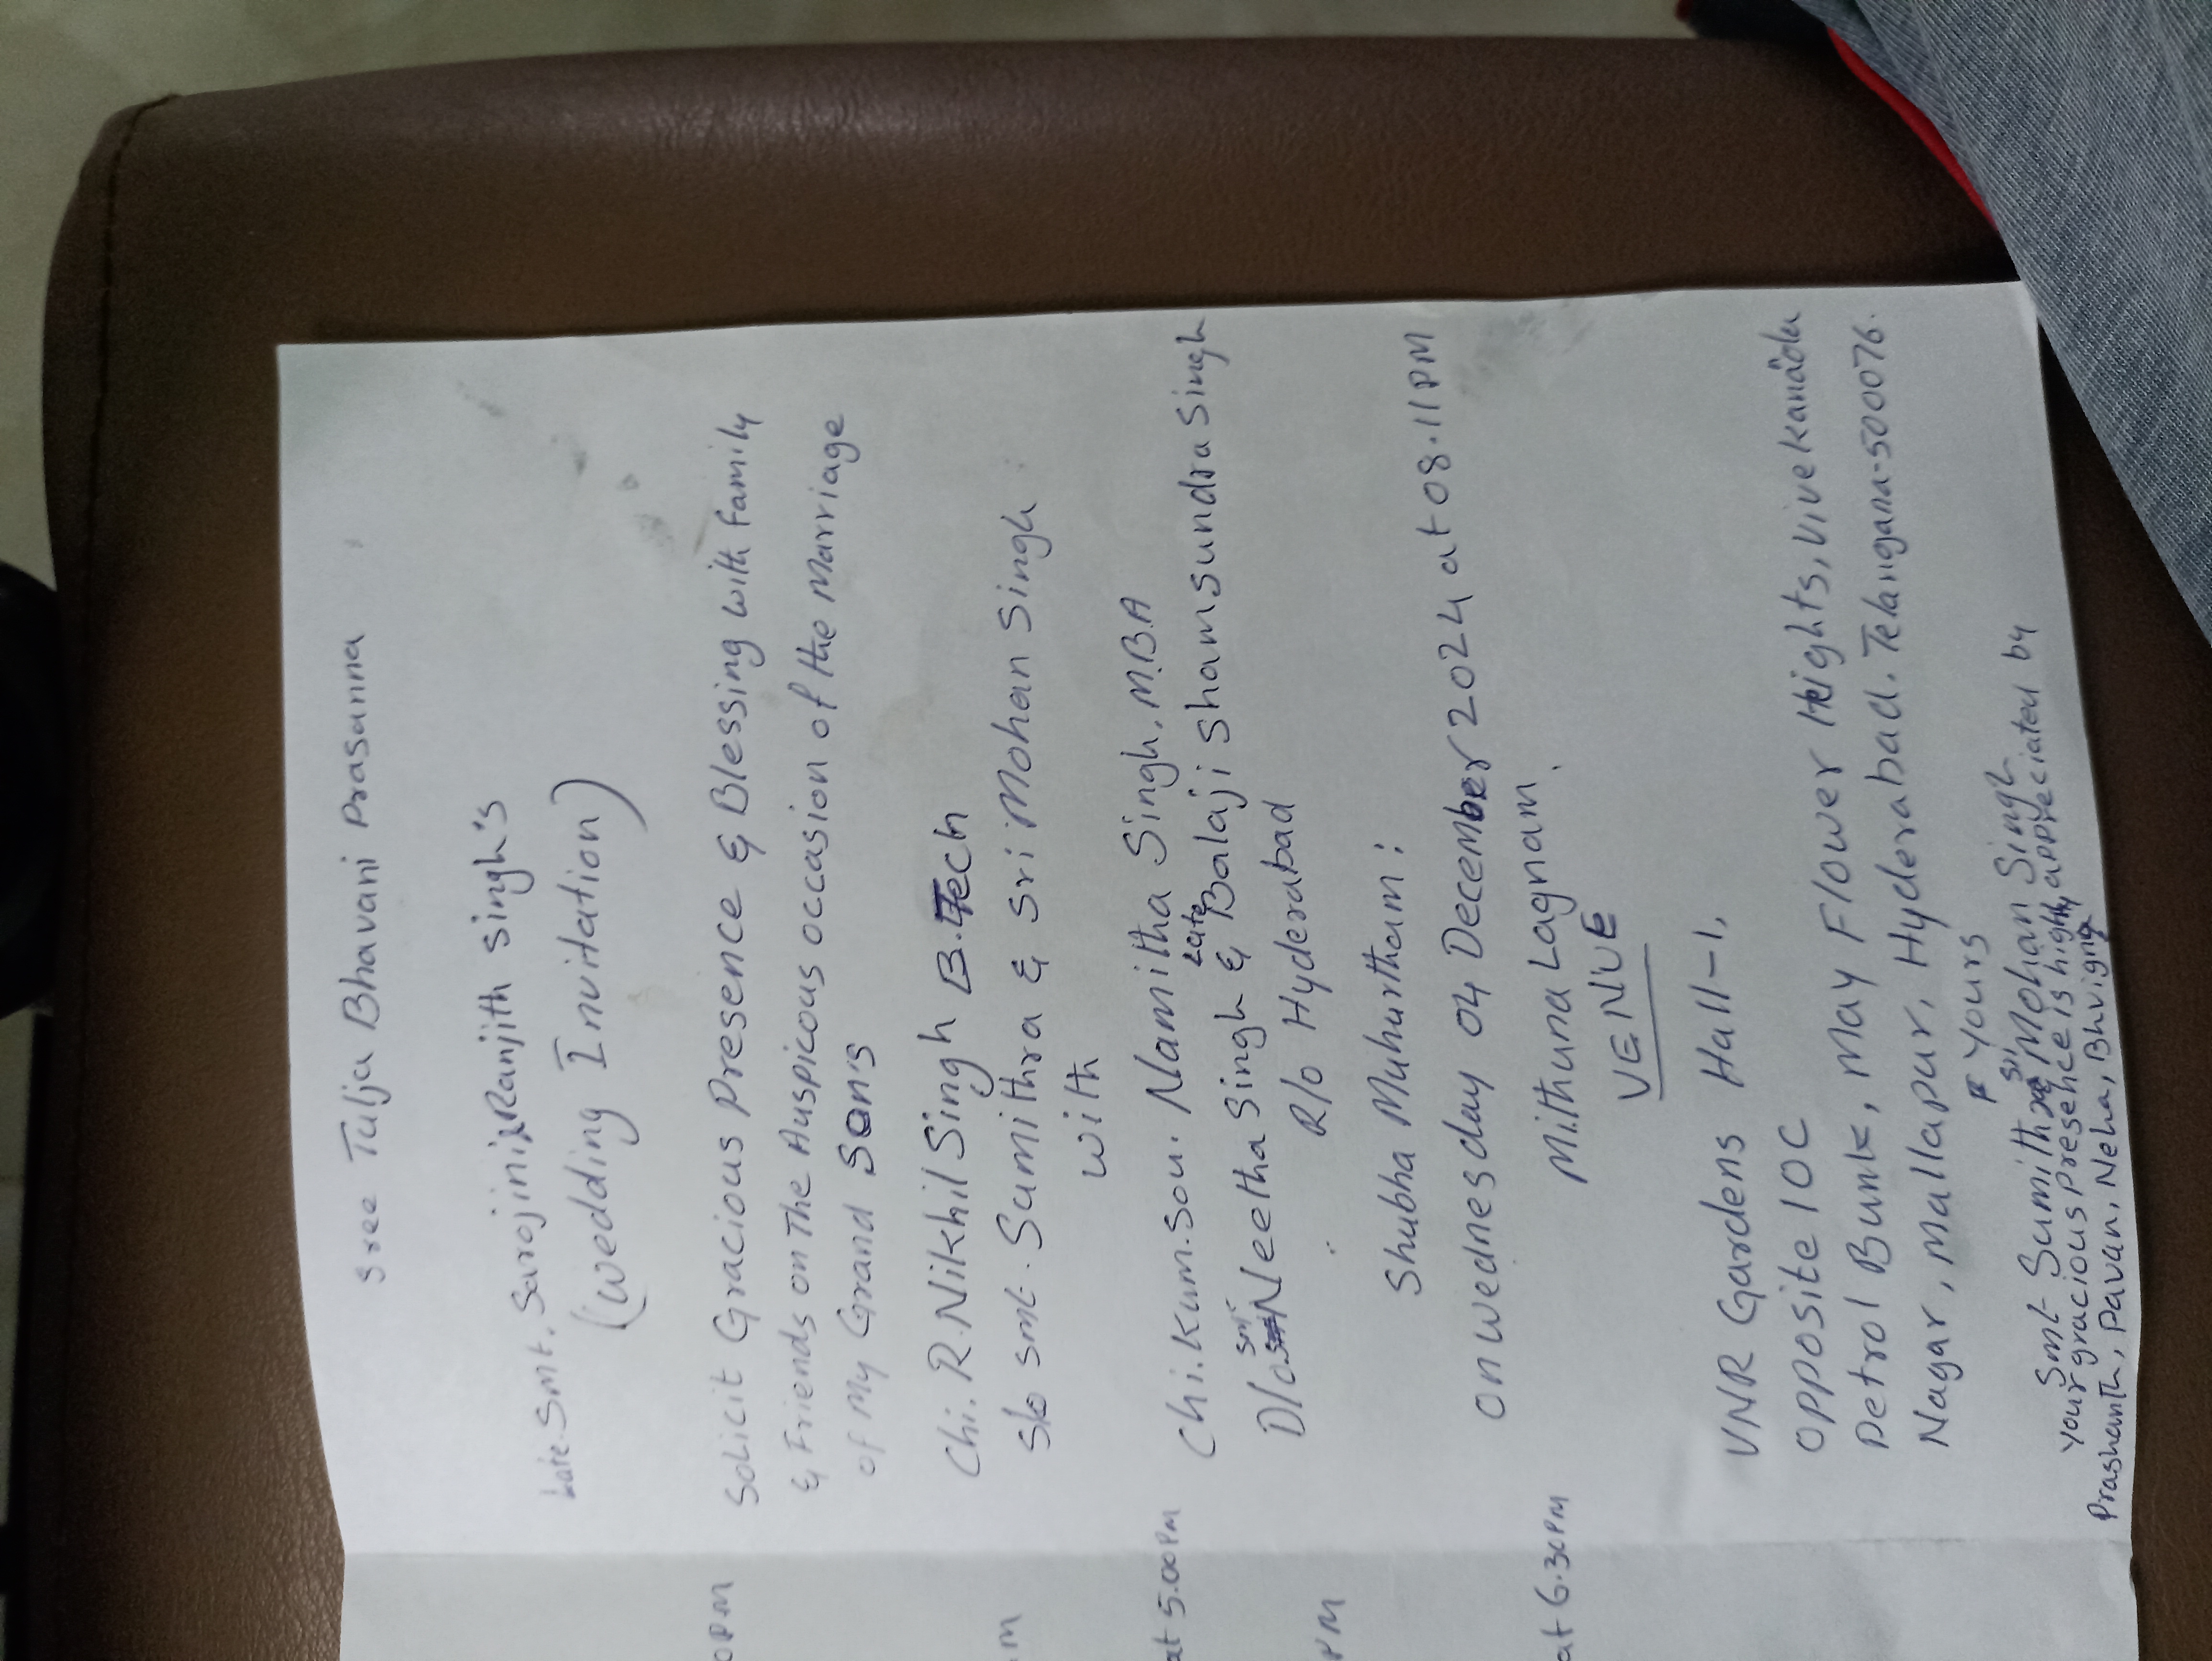 Sree Tulja Bhavani Prasanna
Late. Smt. Sarojini Ranjith Singh's
(Wedding Invitation)
Solicit Gracious Presence & Blessing with Family
& Friends on The Auspicous occasion of the Marriage
of My Grand Sons
Chi. R. Nikhil Singh B.Tech
S/o Smt. Sumithra & Sri Mohan Singh
with
Chi.Kum.Sou. Namitha Singh, M.B.A
D/o. Smt Neetha Singh & Late Balaji Shamsundra Singh
R/o Hyderabad
Shubha Muhurtham:
on Wednesday 04 December 2024 at 08.11 PM
Mithuna Lagnam.
VENUE
VNR Gardens Hall-1,
opposite IOC
Petrol Bunk, May Flower Heights, Vivekananda
Nagar, Mallapur, Hyderabad. Telangana-500076.
Yours
Smt Sumithra Sri Mohan Singh
Your gracious presence is highly appreciated by
Prashanth, Pavan, Neha, Bhvigna
PM
at 5.00PM
PM
at 6.30PM